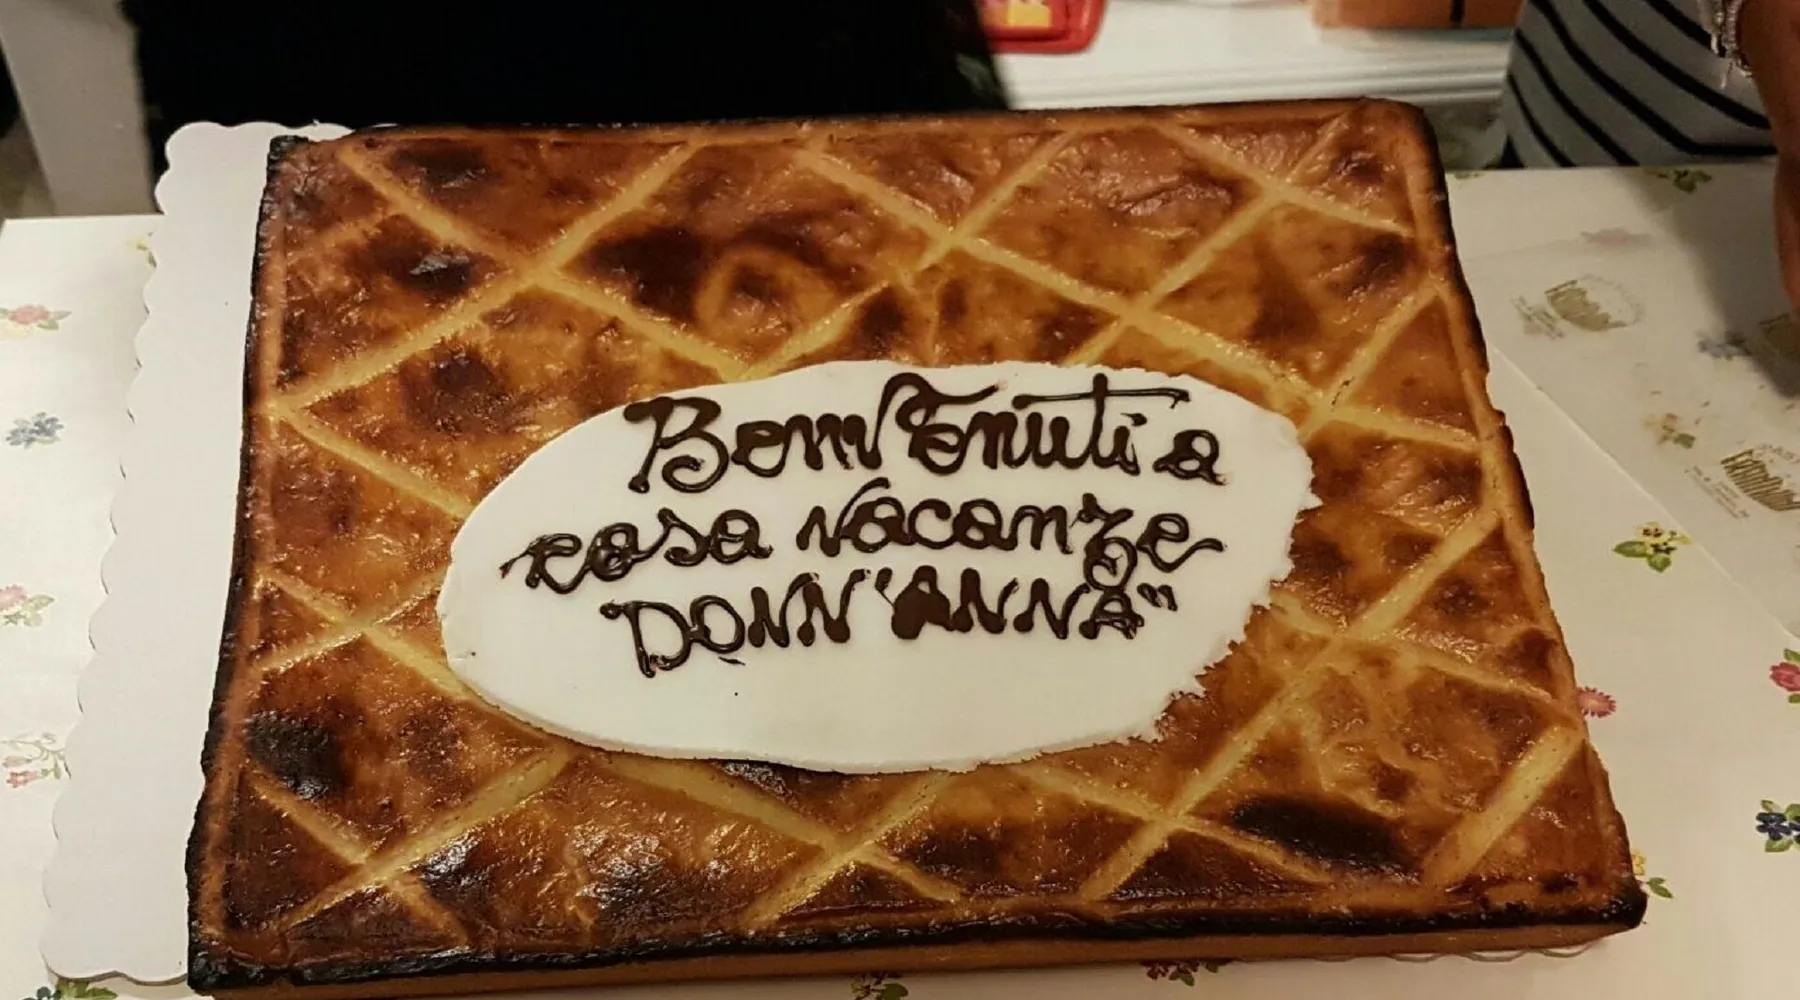 Benvenuti a
casa vacanze
DONN'ANNA"